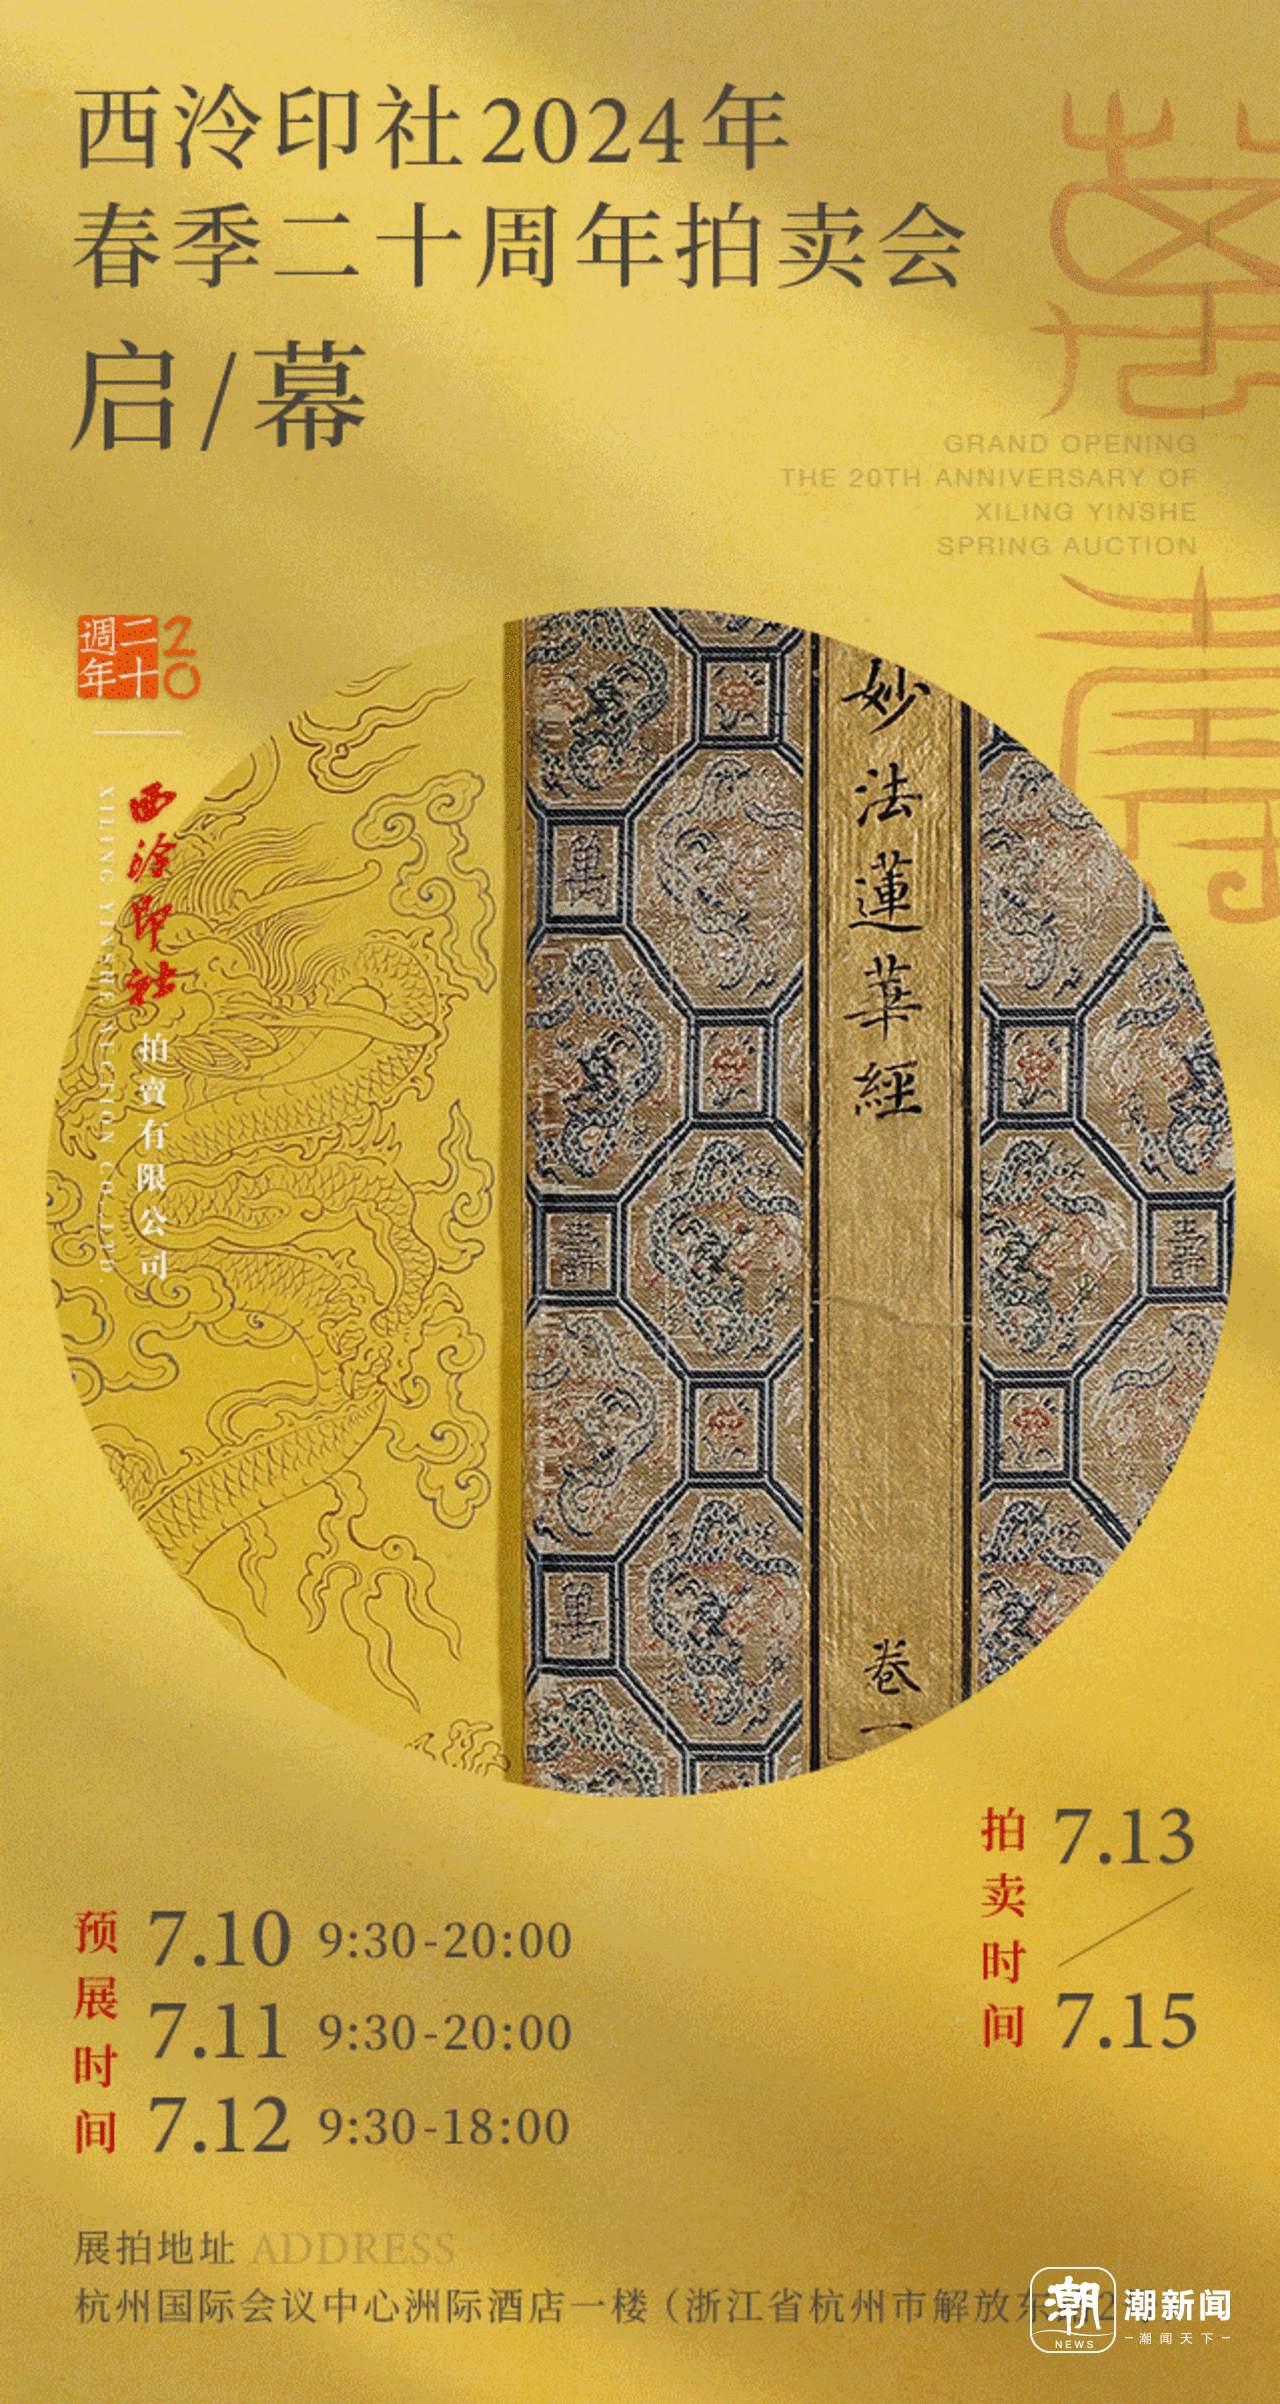 西泠印社2024年
春季二十周年拍卖会
启/幕
GRAND OPENING
THE 20TH ANNIVERSARY OF
XILING YINSHE
SPRING AUCTION
二十週年
20
西泠印社
拍賣有限公司
XILING YINSHE AUCTION CO.,LTD.
妙法蓮華經
卷一
萬
壽
萬
壽
拍卖时间
7.13
7.15
预展时间
7.10 9:30-20:00
7.11 9:30-20:00
7.12 9:30-18:00
展拍地址 ADDRESS
杭州国际会议中心洲际酒店一楼（浙江省杭州市解放东
潮
NEWS
潮新闻
潮闻天下